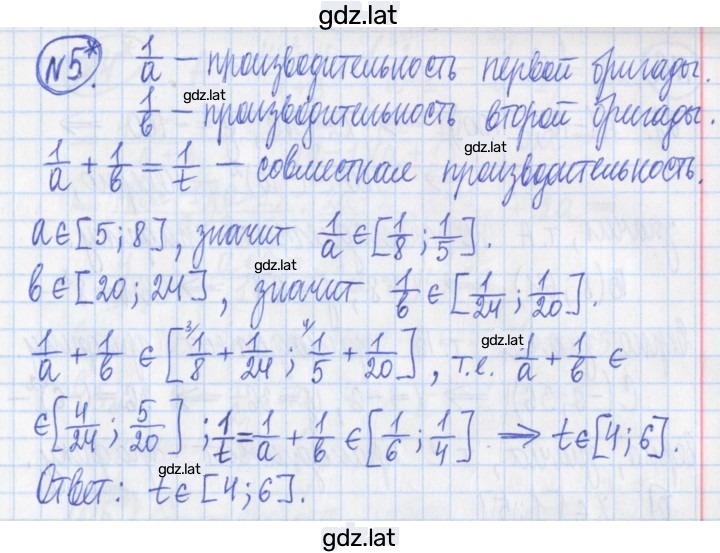 gdz.lat
№5*. 1/a — производительность первой бригады.
gdz.lat
1/b — производительность второй бригады.
1/a + 1/b = 1/t — совместная производительность.
gdz.lat
a∈[5;8], значит 1/a ∈ [1/8; 1/5].
gdz.lat
b∈[20;24], значит 1/b ∈ [1/24; 1/20].
gdz.lat
1/a + 1/b ∈ [3/ 1/8 + 1/24; 4/ 1/5 + 1/20], т.е. 1/a + 1/b ∈
∈[4/24; 5/20]; 1/t = 1/a + 1/b ∈ [1/6; 1/4] ⇒ t∈[4;6].
gdz.lat
Ответ: t∈[4;6].
gdz.lat